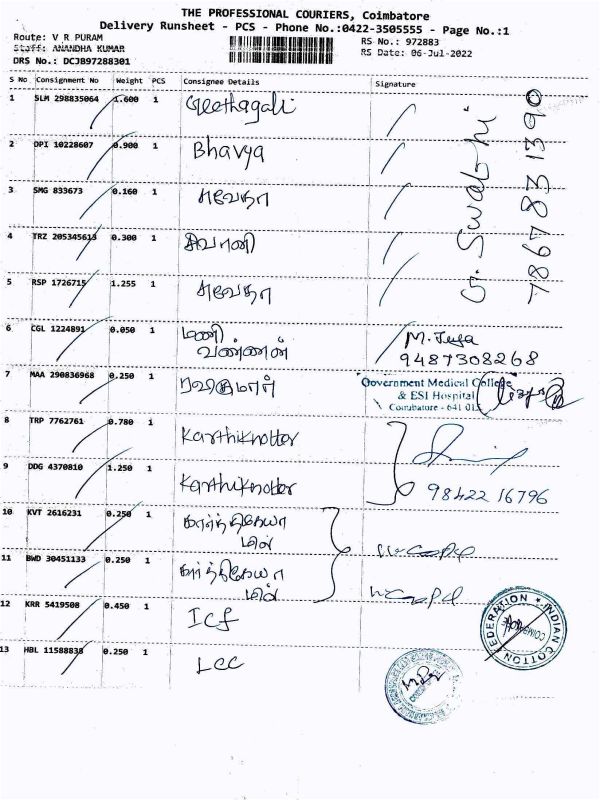 THE PROFESSIONAL COURIERS, Coimbatore
Delivery Runsheet - PCS - Phone No.:0422-3505555 - Page No.:1
Route: V R PURAM
RS No.: 972883
Staff: ANANDHA KUMAR
RS Date: 06-Jul-2022
DRS No.: DCJB97288301
S No Consignment No Weight PCS Consignee Details Signature
1 SLM 298835064 1.600 1
2 DPI 10228607 0.900 1 Bhavya
3 SMG 833673 0.160 1 சுவேதா
4 TRZ 205345613 0.300 1 சிவானி
5 RSP 1726715 1.255 1 சுவேதா
G. Swathi
7867831390
6 CGL 1224891 0.050 1 மணி வண்ணன்
9487308268
7 MAA 290836968 0.250 1 ரவிகுமார்
Government Medical College
& ESI Hospital
Coimbatore - 641 015
8 TRP 7762761 0.780 1
9 DDG 4370810 1.250 1
98422 16796
10 KVT 2616231 0.250 1 கார்த்திகேயா மில்
11 BWD 30451133 0.250 1 கார்த்திகேயா மில்
12 KRR 5419508 0.450 1 ICF
INDIAN COTTON FEDERATION
13 HBL 11588838 0.250 1 LCC